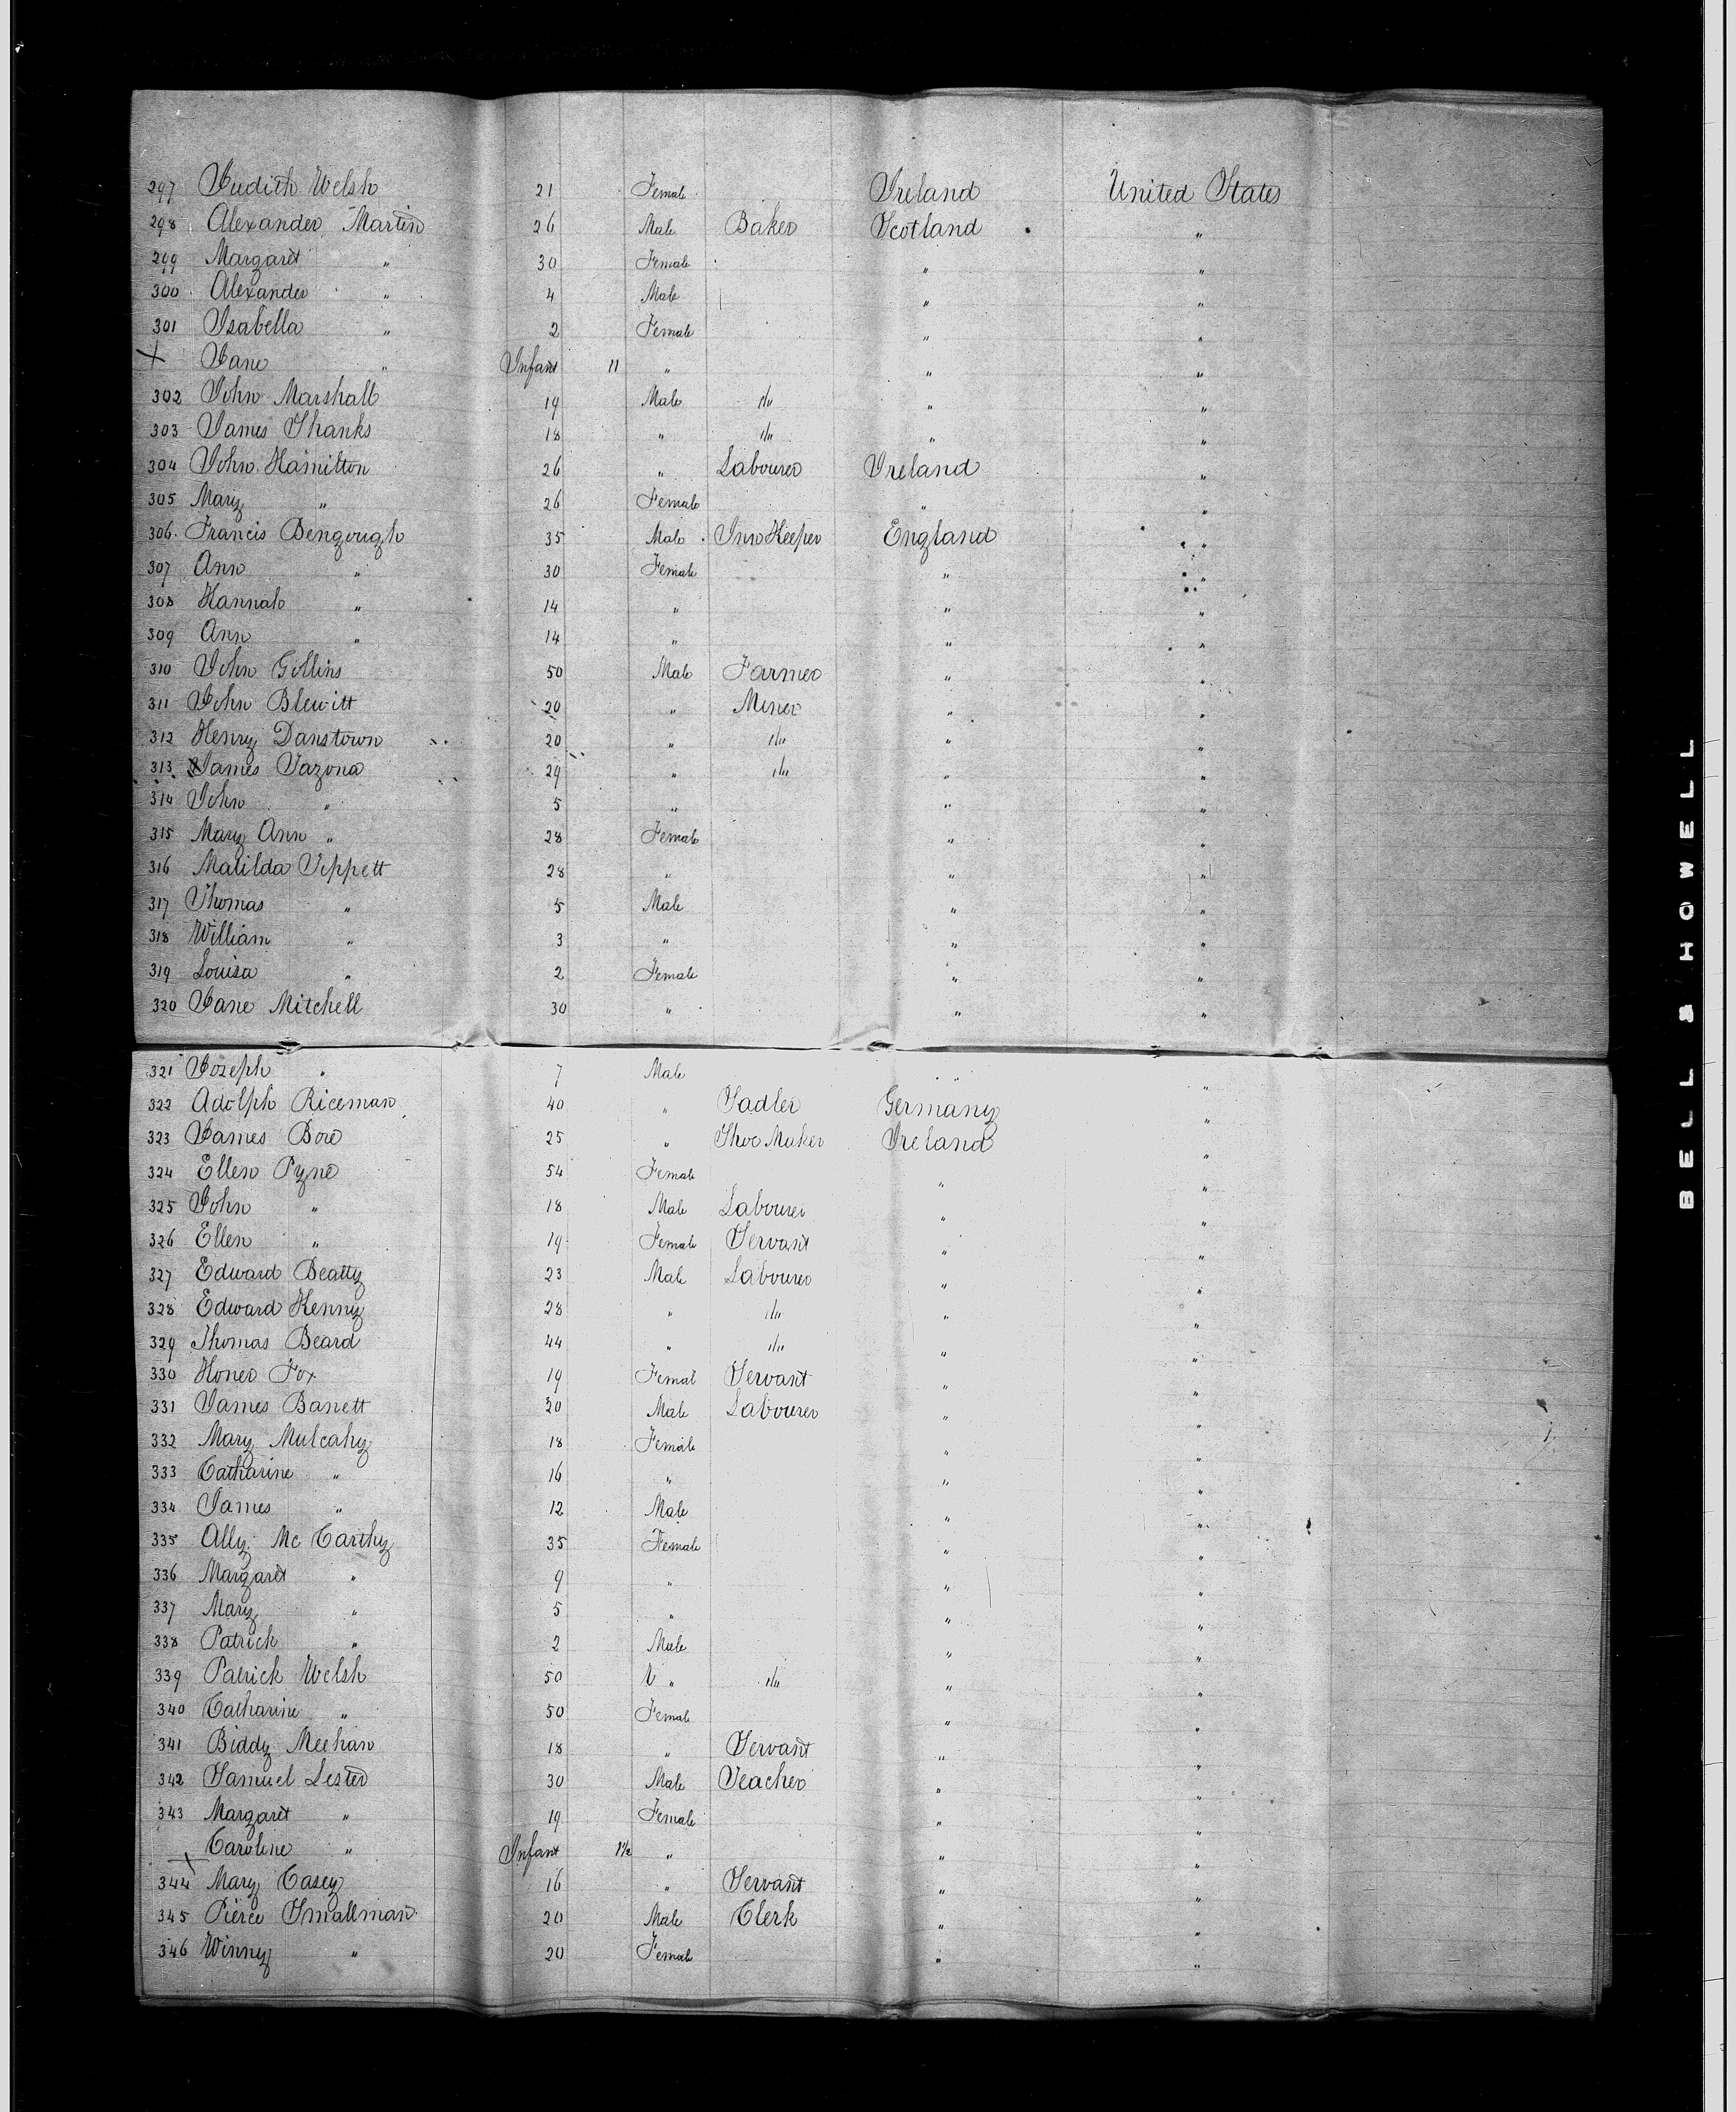 297 Judith Welsh 21 Female Ireland United States
298 Alexander Martin 26 Male Baker Scotland "
299 Margaret " 30 Female " "
300 Alexander " 4 Male " "
301 Isabella " 2 Female " "
X Jane " Infant 11 " " "
302 John Marshall 19 Male " " "
303 James Shanks 18 " " " "
304 John Hamilton 26 " Labourer Ireland "
305 Mary " 26 Female " "
306 Francis Bengough 35 Male Inn Keeper England "
307 Ann " 30 Female " "
308 Hannah " 14 " " "
309 Ann " 14 " " "
310 John Gollins 50 Male Farmer " "
311 John Blewitt 20 " Miner " "
312 Henry Danstown 20 " " " "
313 James Tazona 29 " " " "
314 John " 5 " " "
315 Mary Ann " 28 Female " "
316 Matilda Teppett 28 " " "
317 Thomas " 5 Male " "
318 William " 3 " " "
319 Louisa " 2 Female " "
320 Jane Mitchell 30 " " "
321 Joseph " 7 Male " "
322 Adolph Riceman 40 " Sadler Germany "
323 James Bore 25 " Shoe Maker Ireland "
324 Ellen Pyne 54 Female " "
325 John " 18 Male Labourer " "
326 Ellen " 19 Female Servant " "
327 Edward Beatty 23 Male Labourer " "
328 Edward Kenny 28 " " " "
329 Thomas Beard 44 " " " "
330 Honer Fox 19 Femal Servant " "
331 James Barrett 20 Male Labourer " "
332 Mary Mulcahy 18 Female " "
333 Catharine " 16 " " "
334 James " 12 Male " "
335 Ally Mc Carthy 35 Female " "
336 Margaret " 9 " " "
337 Mary " 5 " " "
338 Patrick " 2 Male " "
339 Patrick Welsh 50 " " " "
340 Catharine " 50 Female " "
341 Biddy Meehan 18 " Servant " "
342 Samuel Lester 30 Male Teacher " "
343 Margaret " 19 Female " "
X Caroline " Infant 1½ " " "
344 Mary Casey 16 " Servant " "
345 Pierce Smallman 20 Male Clerk " "
346 Winny " 20 Female " "
BELL & HOWELL